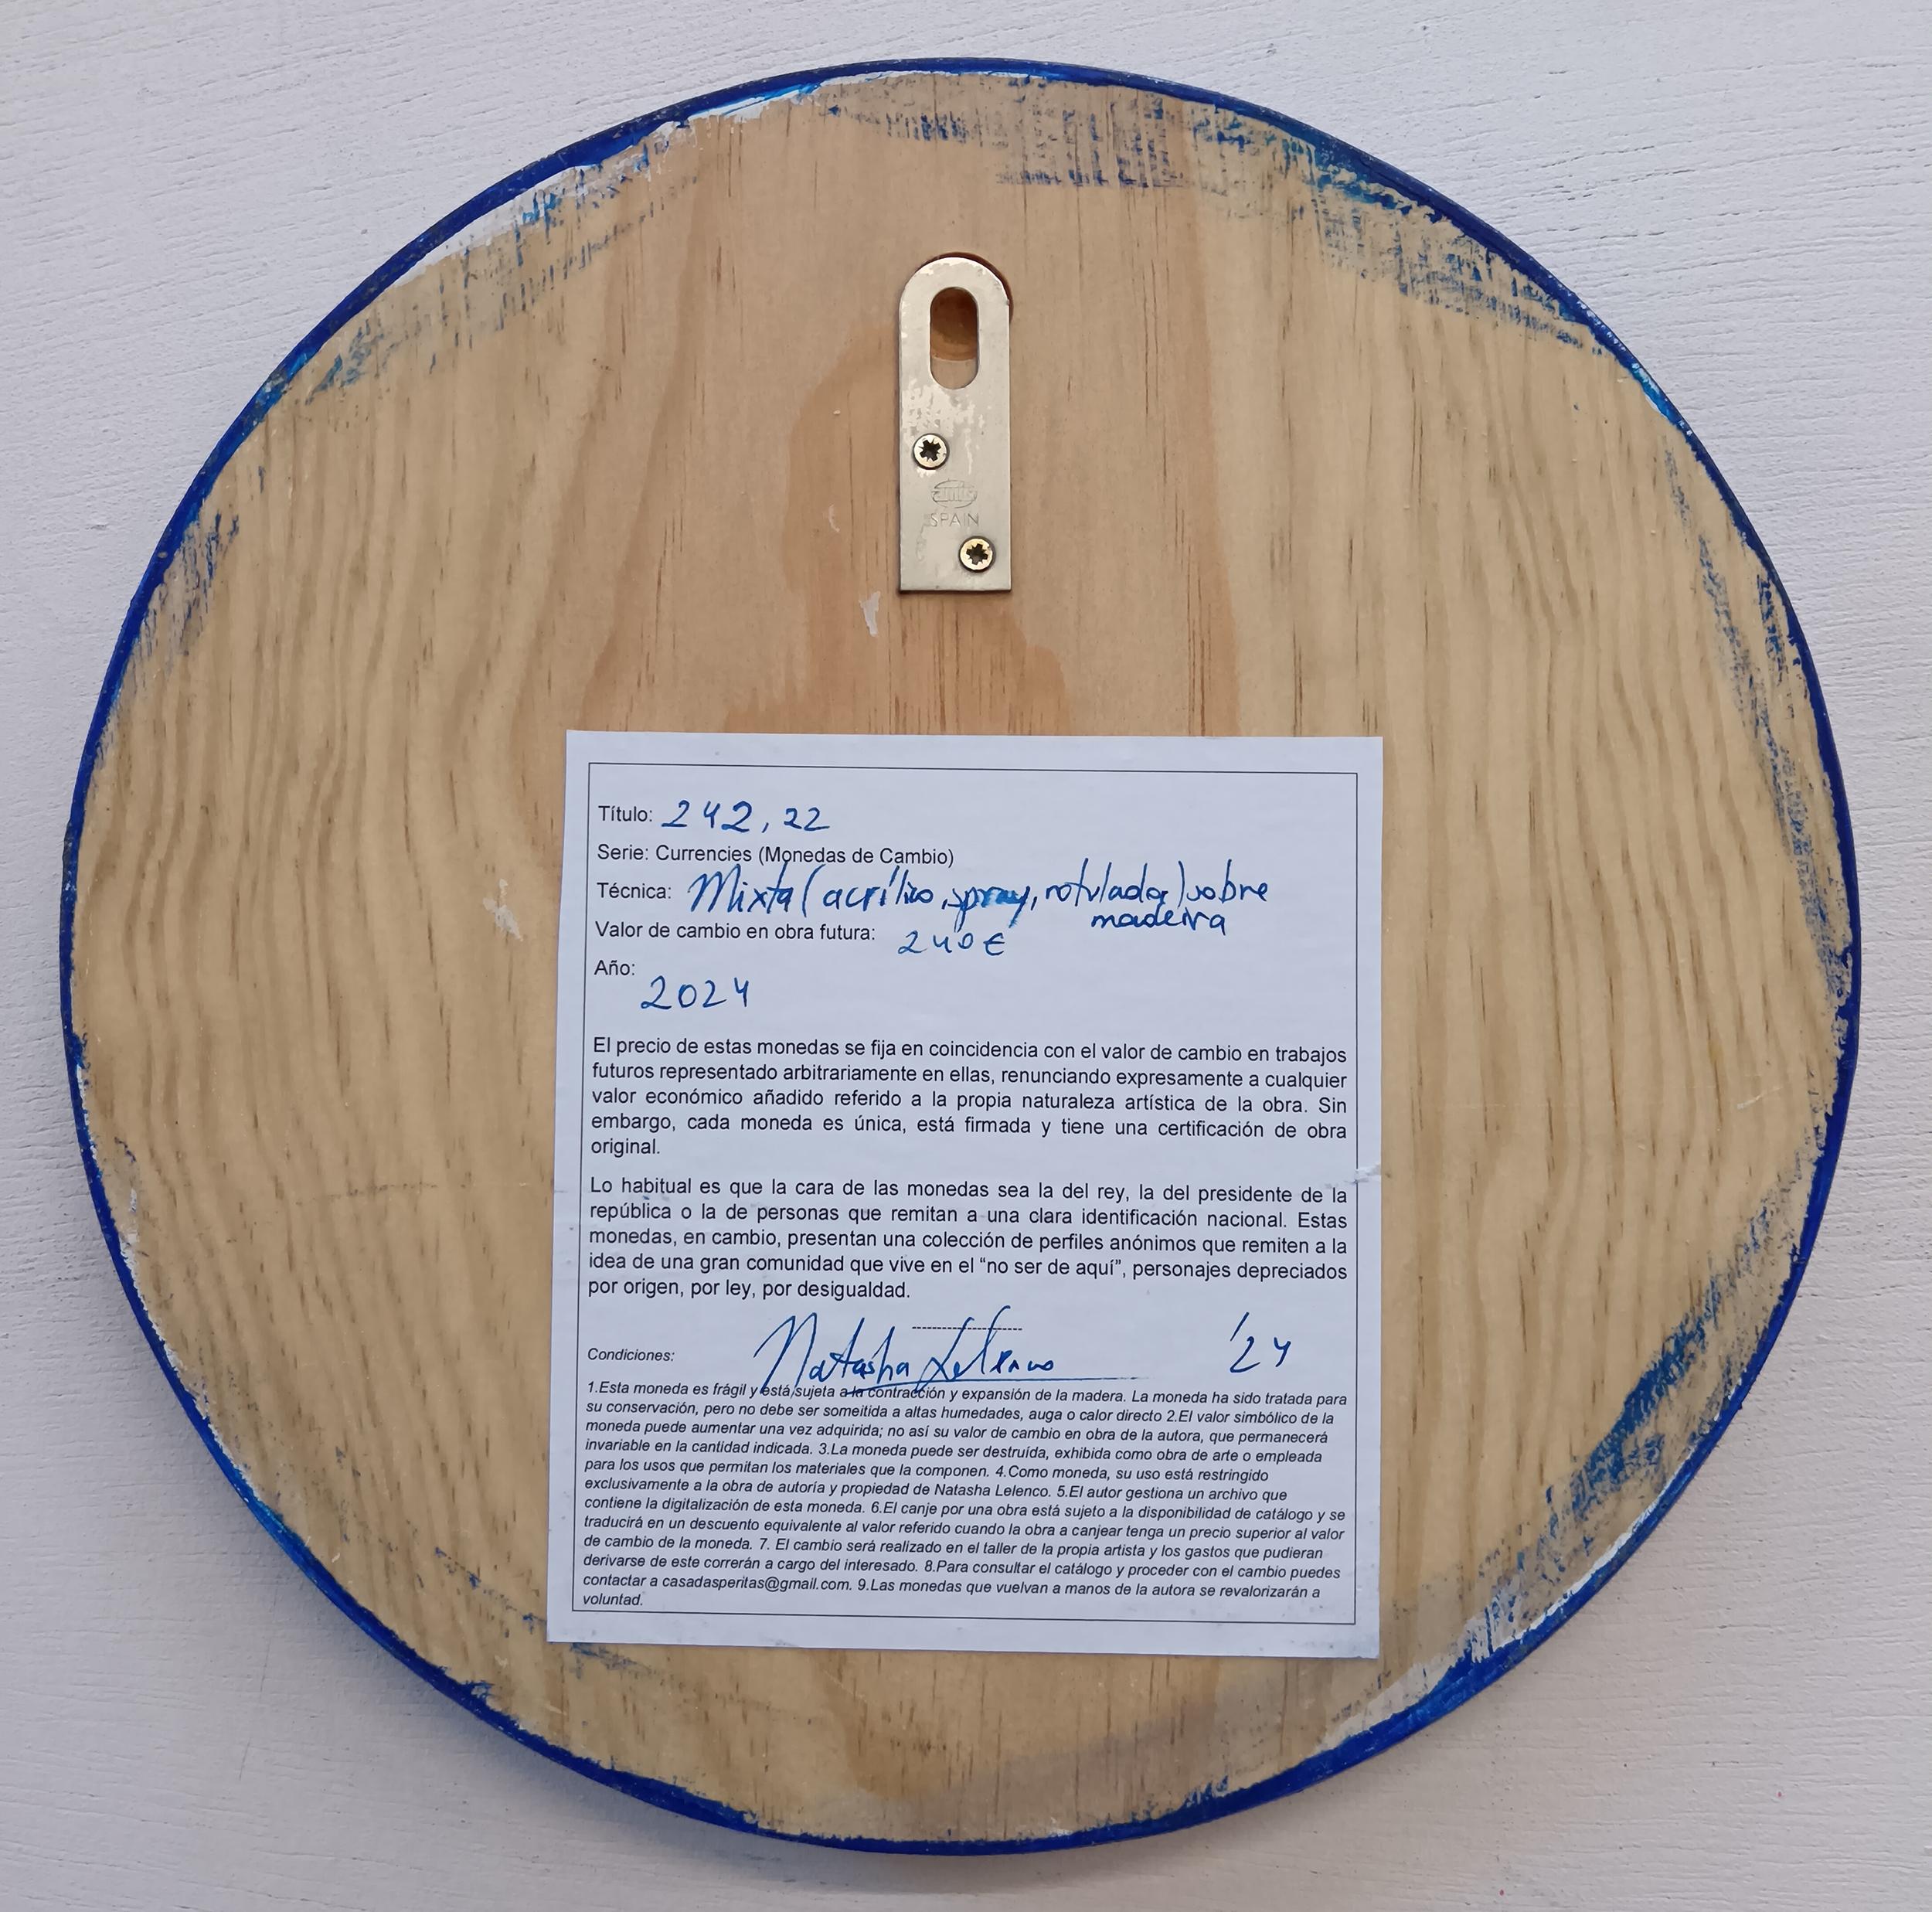 SPAIN
Título: 242,22
Serie: Currencies (Monedas de Cambio)
Técnica: Mixta (acrílico, spray, rotulador) sobre
madeira
Valor de cambio en obra futura: 240€
Año:
2024
El precio de estas monedas se fija en coincidencia con el valor de cambio en trabajos
futuros representado arbitrariamente en ellas, renunciando expresamente a cualquier
valor económico añadido referido a la propia naturaleza artística de la obra. Sin
embargo, cada moneda es única, está firmada y tiene una certificación de obra
original.
Lo habitual es que la cara de las monedas sea la del rey, la del presidente de la
república o la de personas que remitan a una clara identificación nacional. Estas
monedas, en cambio, presentan una colección de perfiles anónimos que remiten a la
idea de una gran comunidad que vive en el “no ser de aquí”, personajes depreciados
por origen, por ley, por desigualdad.
--------------------
Condiciones: Natasha Lelenco '24
1.Esta moneda es frágil y está sujeta a la contracción y expansión de la madera. La moneda ha sido tratada para
su conservación, pero no debe ser someitida a altas humedades, auga o calor directo 2.El valor simbólico de la
moneda puede aumentar una vez adquirida; no así su valor de cambio en obra de la autora, que permanecerá
invariable en la cantidad indicada. 3.La moneda puede ser destruída, exhibida como obra de arte o empleada
para los usos que permitan los materiales que la componen. 4.Como moneda, su uso está restringido
exclusivamente a la obra de autoría y propiedad de Natasha Lelenco. 5.El autor gestiona un archivo que
contiene la digitalización de esta moneda. 6.El canje por una obra está sujeto a la disponibilidad de catálogo y se
traducirá en un descuento equivalente al valor referido cuando la obra a canjear tenga un precio superior al valor
de cambio de la moneda. 7. El cambio será realizado en el taller de la propia artista y los gastos que pudieran
derivarse de este correrán a cargo del interesado. 8.Para consultar el catálogo y proceder con el cambio puedes
contactar a casadasperitas@gmail.com. 9.Las monedas que vuelvan a manos de la autora se revalorizarán a
voluntad.